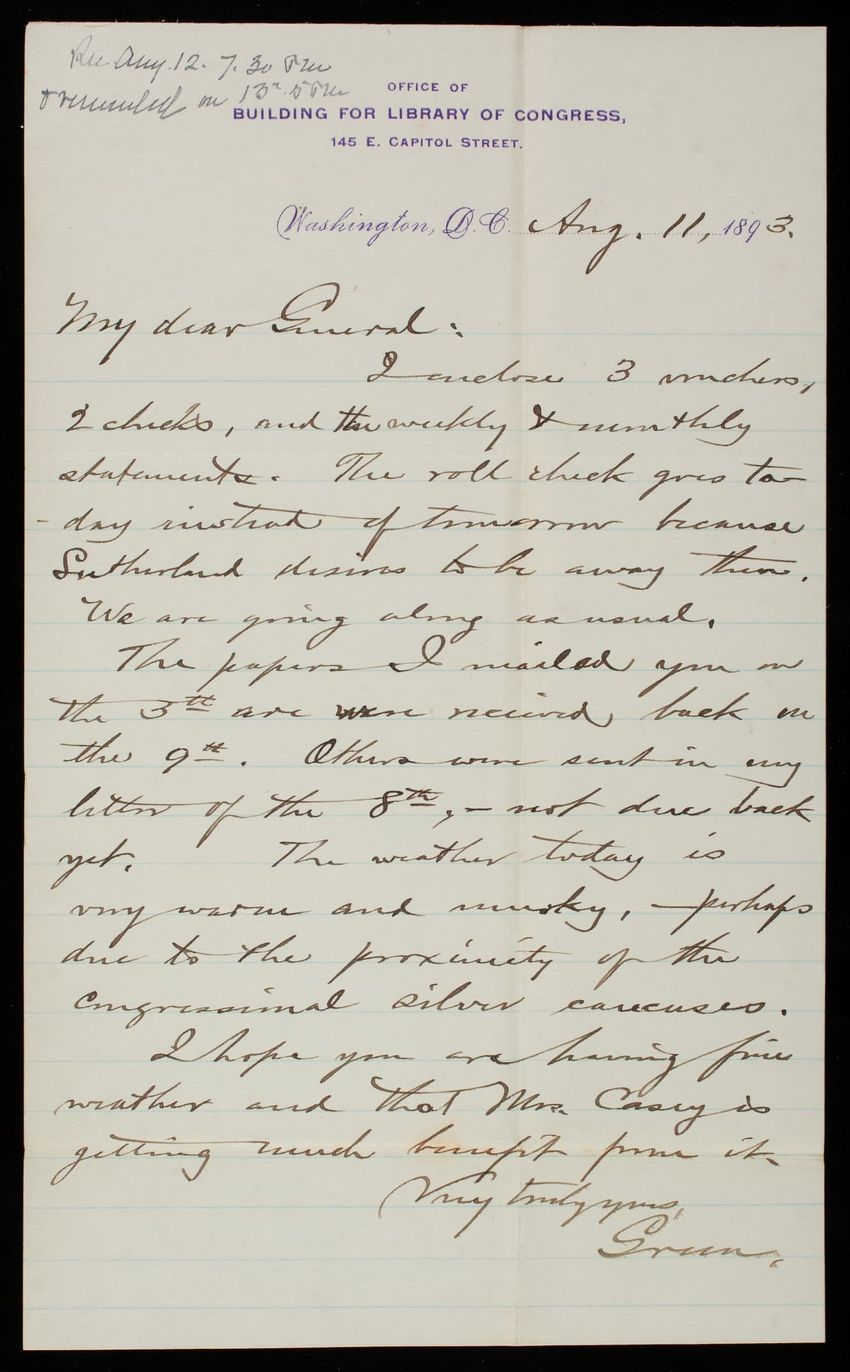 Rec. Aug. 12. 7.30 PM
& remailed on 13th. 5 PM
OFFICE OF
BUILDING FOR LIBRARY OF CONGRESS,
145 E. CAPITOL STREET.
Washington, D.C. Aug. 11, 1893.
My dear General:
I enclose 3 vouchers,
2 checks, and the weekly & monthly
statements. The roll check goes to-
-day instead of tomorrow because
Sutherland desires to be away then.
We are going along as usual.
The papers I mailed you on
the 3th are were received back on
the 9th. Others were sent in my
letter of the 8th, - not due back
yet. The weather today is
very warm and murky, - perhaps
due to the proximity of the
congressional silver caucuses.
I hope you are having fine
weather and that Mrs. Casey is
getting much benefit from it.
Very truly yours,
Green.